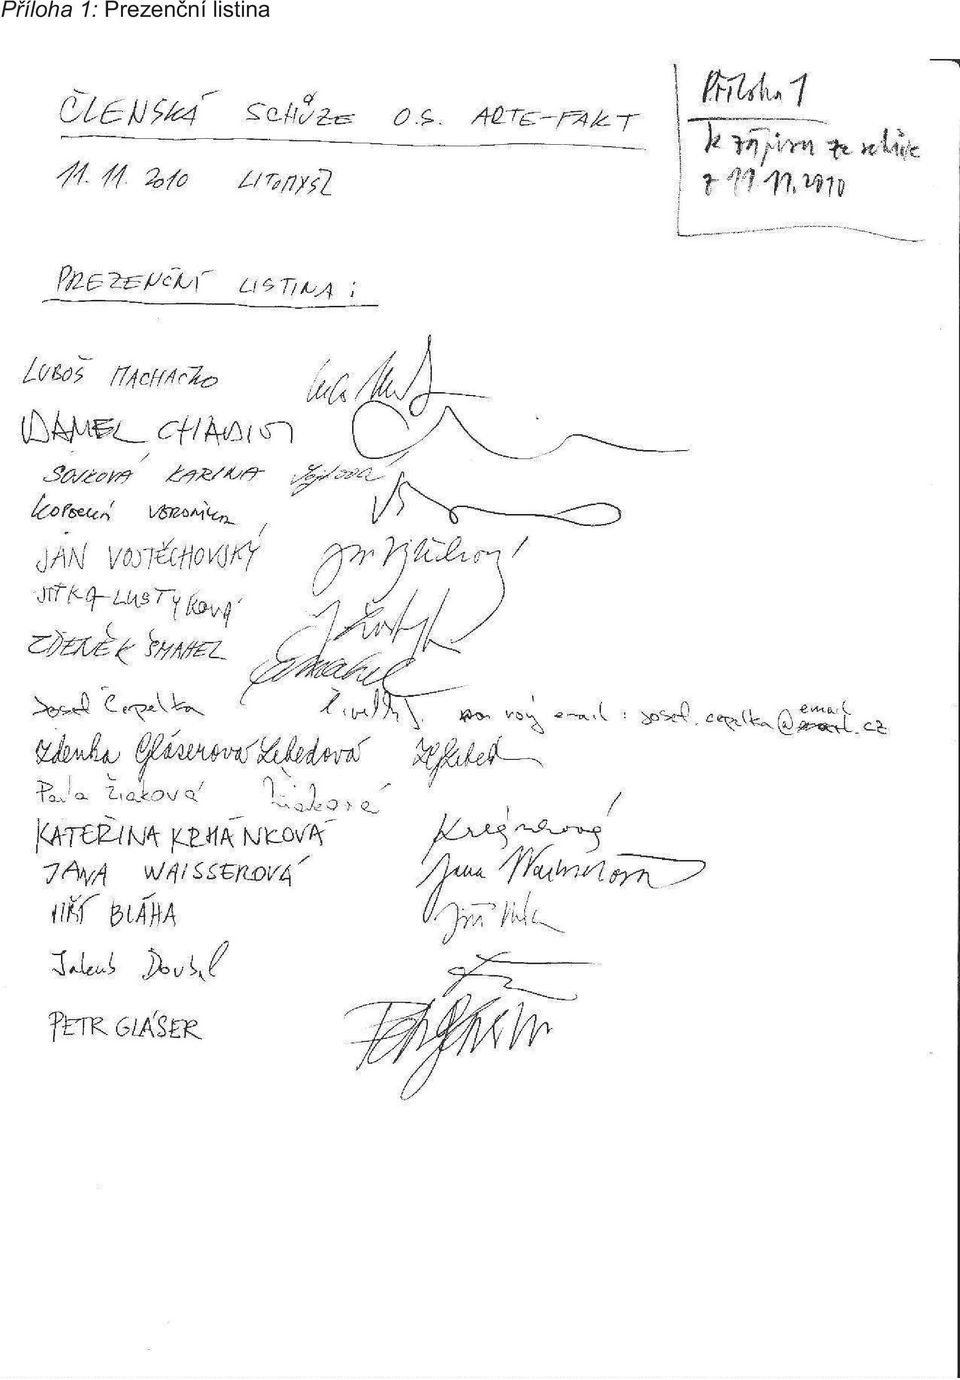 Příloha 1: Prezenční listina
ČLENSKÁ SCHŮZE O.S. ARTE-FAKT
11. 11. 2010 LITOMYŠL
Příloha 1
k zápisu ze schůze
z 11.11.2010
PREZENČNÍ LISTINA :
LUBOŠ MACHAČKO
DANIEL CHADIM
SOJKOVÁ KARINA Sojková
KOPECKÁ VERONIKA
JAN VOJTĚCHOVSKÝ
JITKA LUSTYKOVÁ
ZDENĚK ŠMAHEL Šmahel
Josef Čepelka nový email : josef.cepelka@email.cz
Zdenka Gláserová Lebedová
Pavla Žiaková Žiaková
KATEŘINA KRHÁNKOVÁ
JANA WAISSEROVÁ Jana Waisserová
JIŘÍ BLÁHA
Jakub Doubal
PETR GLÁSER